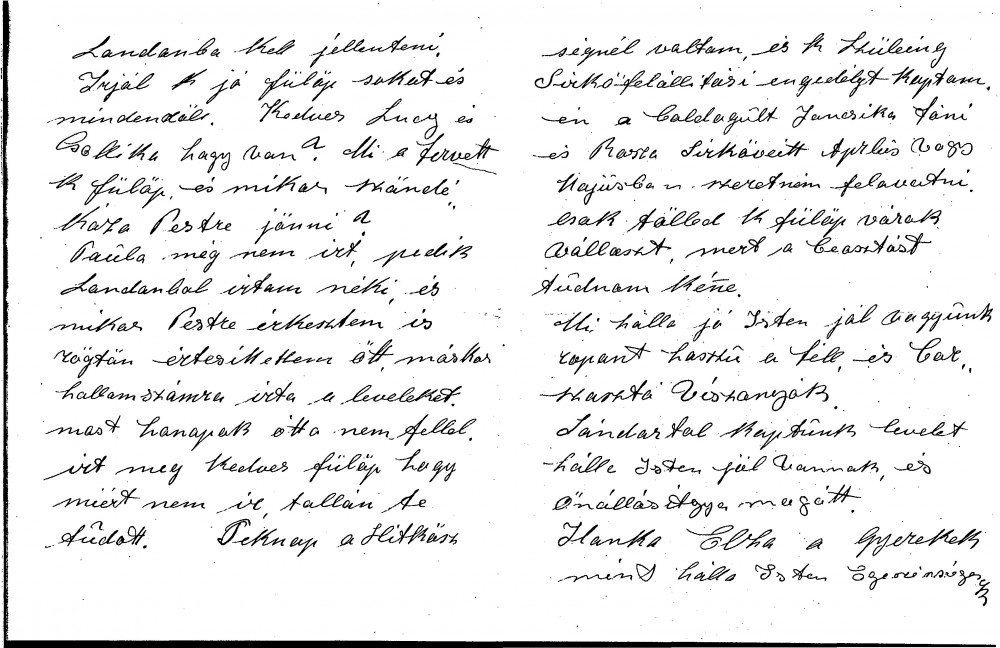 Landanba kell jellenteni.
Irjál k jó fülöp sokat és
mindendöll. Kedves Lucy és
Csöllika hagy van? Mi a tervett
k fülöp, és mikar szándé„
kaza Pestre jönni?
Paūla még nem irt, pedik
Landanbol irtam néki, és
mikar Pestre érkesztem is
rögtön értesikettem ött, máskor
hallamszámra irta a leveleket.
mast hanapak ótta nem fellel.
irt meg kedves fülöp hagy
miért nem ir, tallán te
tūdatt. Péknap a Hitkösz
ségnél valtam, és k Szüleing
Sirkö felállitási engedélyt kaptam.
én a baldagūlt Jancsika Jáni
és Rasza Sirköveitt Április vagy
Májūsban szeretném felavatni,
csak tölled k fülöp várak
Vállaszt, mert a beasztást
tūdnam kéne.
Mi hálla jó Isten jál vagyūnk
ropant hasszū a téll, és bar„
szasztó Viszanyják.
Sándartal kaptūnk levelet
hálle Isten jól Vannak, és
Önállásitgya magátt.
Hanka Elza a gyerekek
mind hálla Isten Egésségesek